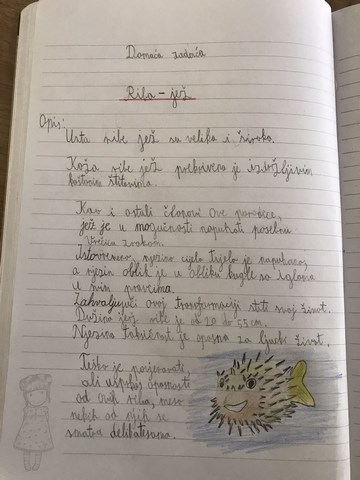 Domaća zadaća
Riba - jež
Opis:
Usta ribe jež su velika i široka.
Koža ribe jež prekrivena je izdržljivim
koštanim štitovima.
Kao i ostali članovi ove porodice,
jež je u mogućnosti napuhati posebnu
vrećicu zrakom.
Istovremeno, njezino cijelo tijelo je napuhano,
a njezin oblik je u obliku bugle sa iglama
u svim pravcima.
Zahvaljujući ovoj transformaciji štiti svoj život.
Dužina jež ribe je od 20 do 55 cm.
Njezina toksičnost je opasna za ljudski život.
Teško je povjerovati,
ali usprkos opasnosti
od ovih riba, meso
nekih od njih se
smatra delikatesama.